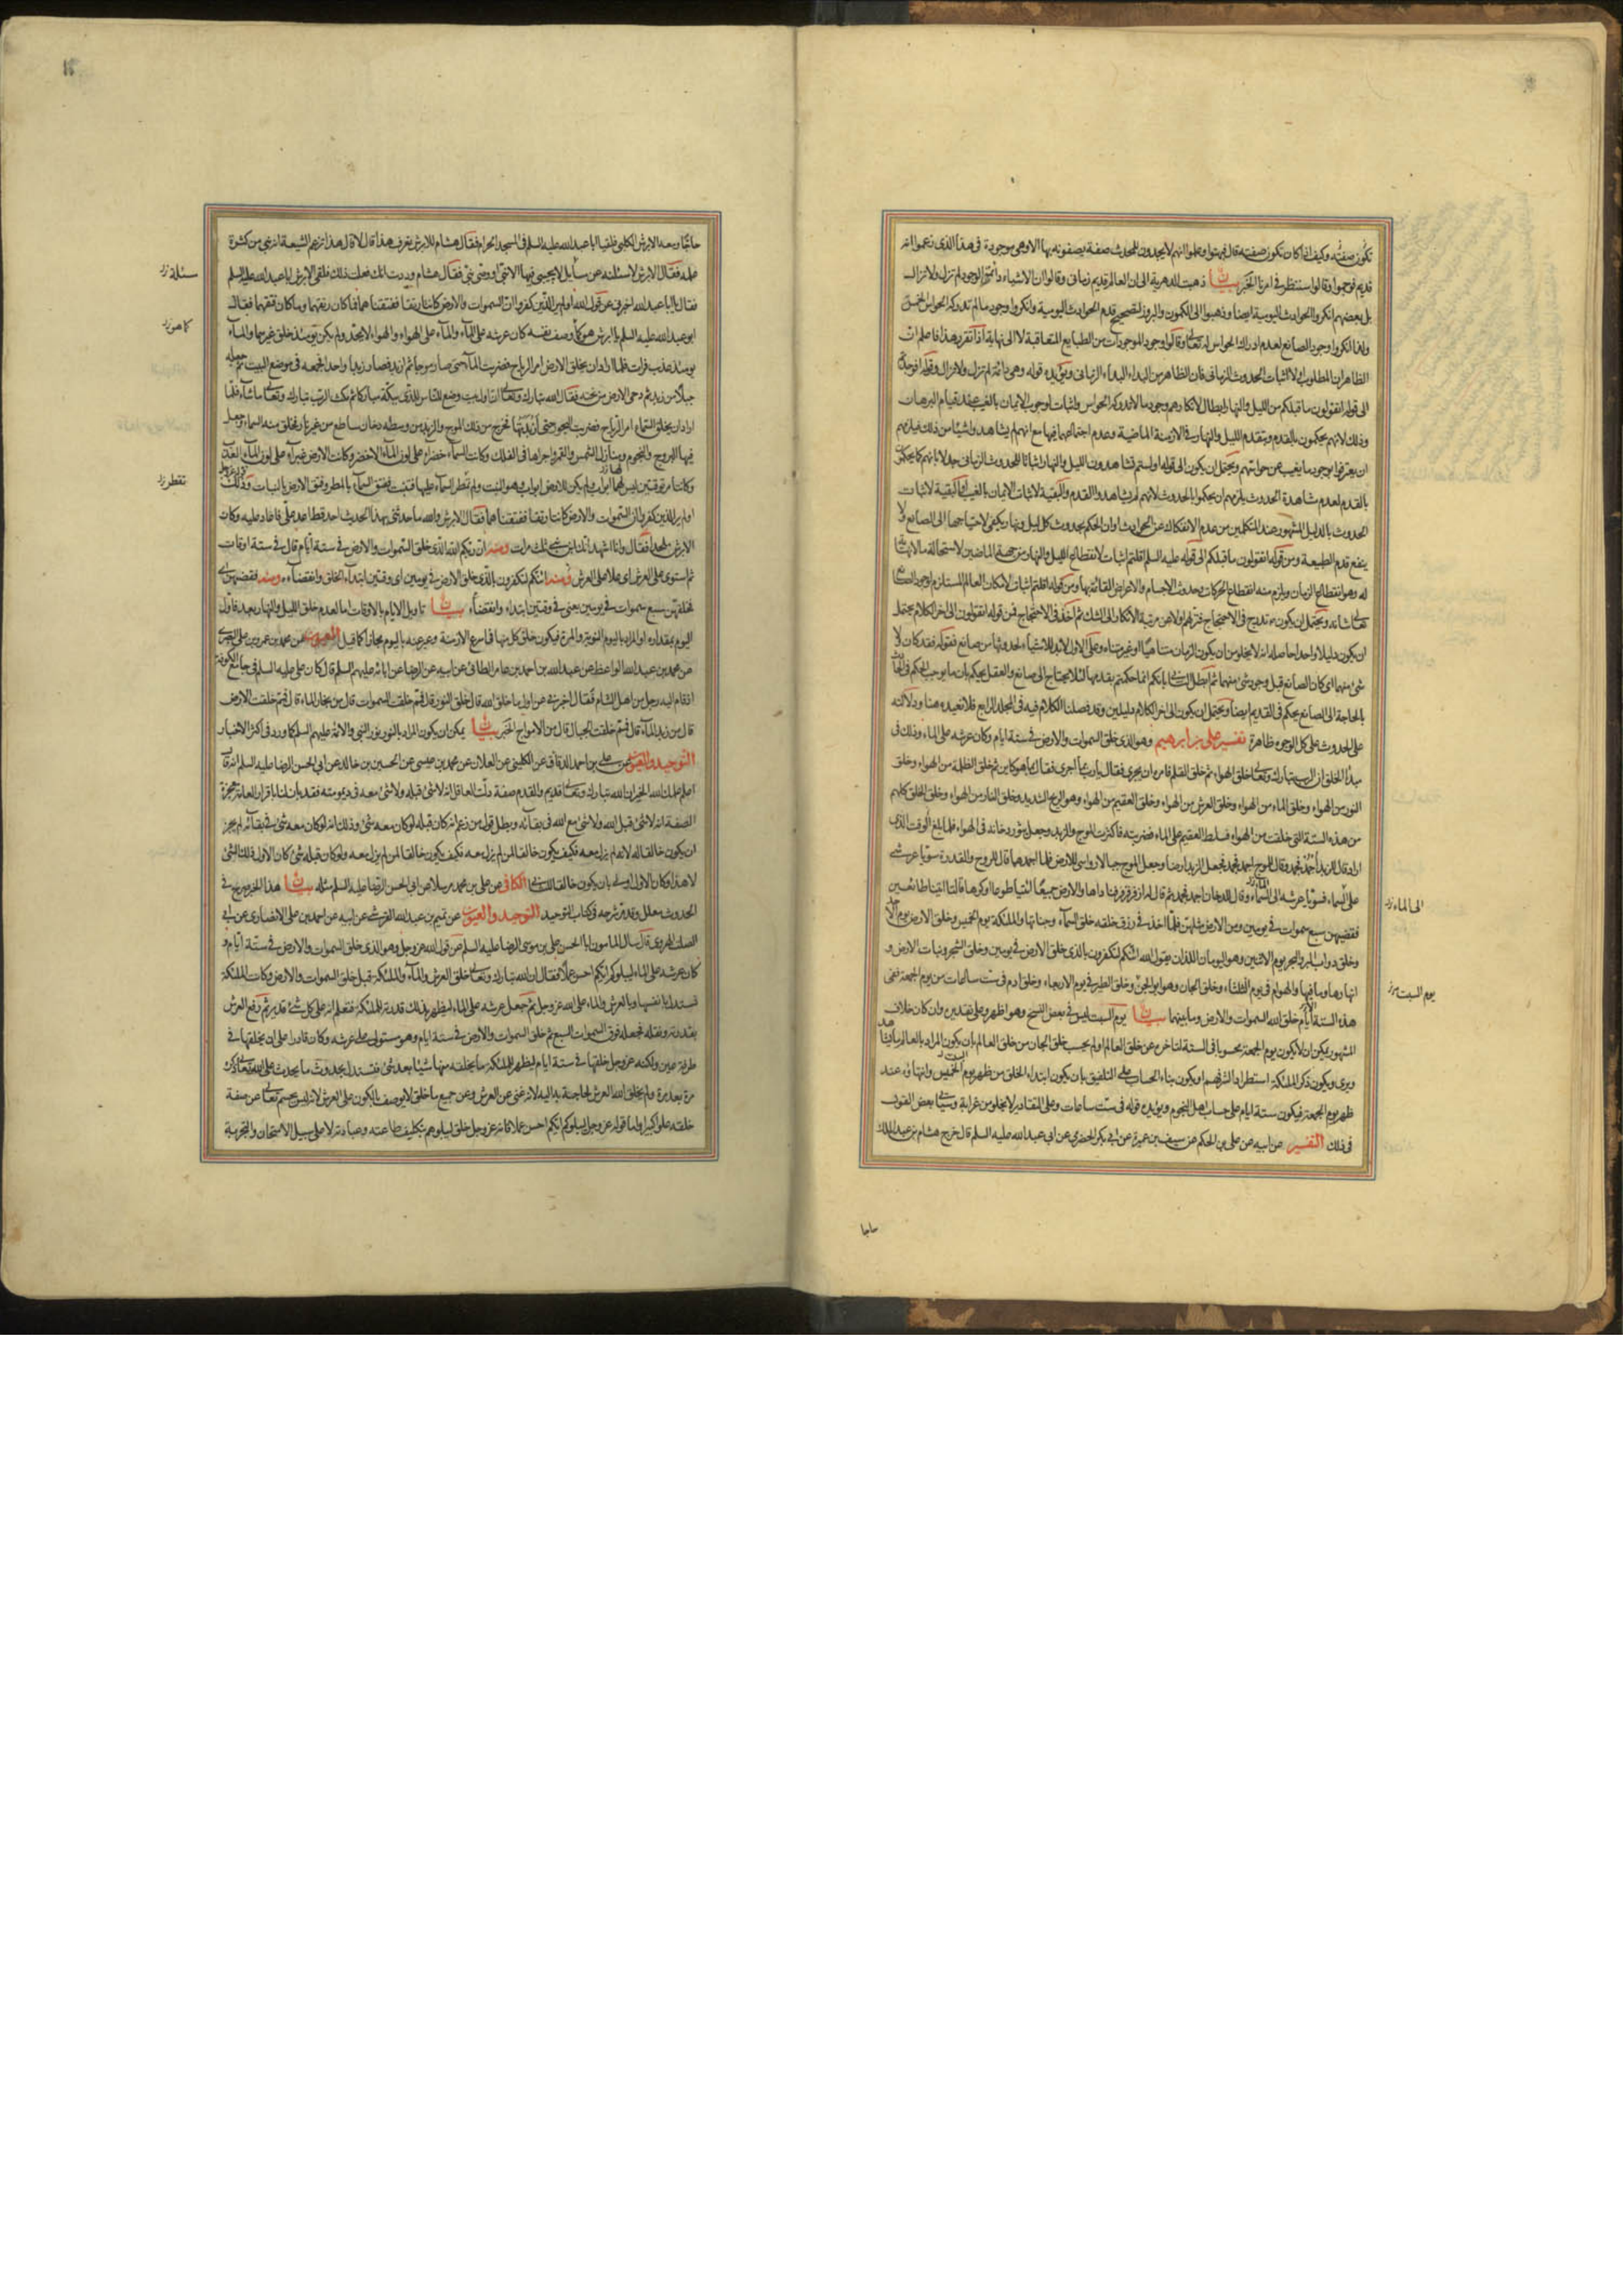 تكون صفته وكيف اذا كان تكون صفته قال فبهتوا وعلموا انهم لا يجدون للمحدث صفة يصفونه بها الا وهي موجودة في هذا الذي زعموا انه
قديم فوجموا وقالوا سننظر في امرنا الخبر بيان ذهبت الدهرية الى ان العالم قديم زماني وقالوا ان الاشياء دائمة الوجود لم تزل ولا تزال
بل بعضهم انكروا الحوادث اليومية ايضا وذهبوا الى الكمون والبروز لتصحيح قدم الحوادث اليومية وانكروا وجود ما لم تدركه الحواس الخمس
ولذا انكروا وجود الصانع لعدم ادراك الحواس له تعالى وقالوا وجود الموجودات من الطبايع المتعاقبة لا الى نهاية اذا تقرر هذا فاعلم ان
الظاهر ان المطلوب اولا اثبات الحدوث الزماني فان الظاهر من البداء البداء الزماني ويؤيده قوله وهي دائمة لم تزل ولا تزال وقوله
الى قوله اتقولون ما قبلكم من الليل والنهار ابطال لانكارهم وجود ما لا تدركه الحواس واثبات لوجوب الايمان بالغيب عند قيام البرهان
وذلك لانهم يحكمون بالقدم وبتقدم الليل والنهار في الازمنة الماضية وعدم اجتماعهما فيها مع انهم لم يشاهدوا شيئا من ذلك فيلزمهم
ان يعترفوا بوجود ما يغيب عن حواسهم ويحتمل ان يكون الى قوله اولستم تشاهدون الليل والنهار اثباتا للحدوث الزماني جدلا بانهم كما يحكمون
بالقدم لعدم مشاهدة الحدوث يلزمهم ان يحكموا بالحدوث لانهم لم يشاهدوا القدم والبقية لاثبات الايمان بالغيب او البقية لاثبات
الحدوث بالدليل المشهور عند المتكلمين من عدم الانفكاك عن الحوادث او ان الحكم بحدوث كل ليل ونهار يكفي لاحتياجها الى الصانع ولا
ينفع قدم الطبيعة ومن قوله اتقولون ما قبلكم الى قوله عليه السلم اقلتم اثبات لانقطاع الليل والنهار من جهة الماضي لاستحالة ما لا نهاية
له وهو انقطاع الزمان ويلزم منه انقطاع الحركات وحدوث الاجسام والاعراض القائمة بها ومن قوله اقلتم اثبات لامكان العالم المستلزم لوجود الصانع
تعالى شانه ويحتمل ان يكون تدرج في الاحتجاج فنزلهم اولا عن مرتبة الانكار الى الشك ثم اخذ في الاحتجاج فمن قوله اتقولون الى اخر الكلام يحتمل
ان يكون دليلا واحدا حاصله انه لا يخلو من ان يكون الزمان متناهيا او غير متناه وعلى الاول لابد للاشياء لحدوثها من صانع فقوله فقد كان ولا
شيء منهما اي كان الصانع قبل وجود شيء منهما ثم ابطل الثاني بانكم انما حكمتم بقدمها لئلا يحتاج الى صانع والعقل يحكم بان ما يوجب الحكم في الحادث
بالحاجة الى الصانع يحكم في القديم ايضا ويحتمل ان يكون الى اخر الكلام دليلين وقد فصلنا الكلام فيه في المجلد الرابع فلا نعيده هنا ودلالته
على الحدوث على كل الوجوه ظاهرة تفسير علي بن ابرهيم وهو الذي خلق السموات والارض في ستة ايام وكان عرشه على الماء وذلك في
مبدأ الخلق ان الرب تبارك وتعالى خلق الهواء ثم خلق القلم فامره ان يجري فقال يا رب بما اجري فقال بما هو كاين ثم خلق الظلمة من الهواء وخلق
النور من الهواء وخلق الماء من الهواء وخلق العرش من الهواء وخلق العقيم من الهواء وهو الريح الشديد وخلق النار من الهواء وخلق الخلق كلهم
من هذه الستة التي خلقت من الهواء فسلط العقيم على الماء فضربته فاكثرت الموج والزبد وجعل يثور دخانه في الهواء فلما بلغ الوقت الذي
اراد قال للزبد اجمد فجمد وقال للموج اجمد فجمد فجعل الزبد ارضا وجعل الموج جبالا رواسي للارض فلما اجمدها قال للروح والقدرة سويا عرشي
على السماء فسويا عرشه الى السماء وقال للدخان اجمد فجمد ثم قال له ازفر فزفر فناداها والارض جميعا ائتيا طوعا او كرها قالتا اتينا طائعين
الى الماء ز
فقضيهن سبع سموات في يومين ومن الارض مثلهن فلما اخذ في رزق خلقه خلق السماء وجناتها والملئكة يوم الخميس وخلق الارض يوم الاحد
وخلق دواب البر والبحر يوم الاثنين وهو اليومان اللذان يقول الله ائنكم لتكفرون بالذي خلق الارض في يومين وخلق الشجر ونبات الارض و
انهارها وما فيها والهوام في يوم الثلثاء وخلق الجان وهو ابو الجن وخلق الطير في يوم الاربعاء وخلق ادم في ست ساعات من يوم الجمعة ففي
يوم السبت ز
هذه الستة الايام خلق الله السموات والارض وما بينهما بيان يوم السبت ليس في بعض النسخ وهو اظهر وعلى تقديره وان كان خلاف
المشهور يمكن ان لا يكون يوم الجمعة محسوبا في الستة لتاخره عن خلق العالم او لم يحسب خلق الجان من خلق العالم بان يكون المراد بالعالم ما يشاهد
ويرى ويكون ذكر الملئكة استطرادا لشرفهم او يكون بناء الحساب على التلفيق بان يكون ابتداء الخلق من ظهر يوم السبت وانتهاؤه عند
ظهر يوم الجمعة فيكون ستة ايام على حساب اهل النجوم ويؤيده قوله في ست ساعات وعلى التقادير لا يخلو من غرابة وسيأتي بعض القول
في ذلك التفسير عن ابيه عن علي بن الحكم عن سيف بن عميرة عن ابي بكر الحضرمي عن ابي عبد الله عليه السلم قال خرج هشام بن عبد الملك
حاجا
حاجا ومعه الابرش الكلبي فلقيا ابا عبد الله عليه السلم في المسجد الحرام فقال هشام للابرش تعرف هذا قال لا قال هذا تزعم الشيعة انه نبي من كثرة
علمه فقال الابرش لاسئلنه عن مسايل لا يجيبني فيها الا نبي او وصي نبي فقال هشام وددت انك فعلت ذلك فلقي الابرش ابا عبد الله عليه السلم
سئلة ز
فقال يا ابا عبد الله اخبرني عن قول الله اولم ير الذين كفروا ان السموات والارض كانتا رتقا ففتقناهما فما كان رتقهما وما كان فتقهما فقال
كما هو ز
ابو عبد الله عليه السلم يا ابرش هو كما وصف نفسه كان عرشه على الماء والماء على الهواء والهواء لا يحد ولم يكن يومئذ خلق غيرهما والماء
يومئذ عذب فرات فلما اراد ان يخلق الارض امر الرياح فضربت الماء حتى صار موجا ثم ازبد فصار زبدا واحدا فجمعه في موضع البيت ثم جعله
جبلا من زبد ثم دحى الارض من تحته فقال الله تبارك وتعالى ان اول بيت وضع للناس للذي ببكة مباركا ثم مكث الرب تبارك وتعالى ما شاء فلما
اراد ان يخلق السماء امر الرياح فضربت البحور حتى ازبدتها فخرج من ذلك الموج والزبد من وسطه دخان ساطع من غير نار فخلق منه السماء وجعل
فيها البروج والنجوم ومنازل الشمس والقمر واجراها في الفلك وكانت السماء خضراء على لون الماء الاخضر وكانت الارض غبراء على لون الماء العذب
تقطر ز
وكانتا مرتوقتين ليس لهما ابواب ولم يكن للارض ابواب وهو النبت ولم تمطر السماء عليها فتنبت ففتق السماء بالمطر وفتق الارض بالنبات وذلك قوله عز وجل
اولم ير الذين كفروا ان السموات والارض كانتا رتقا ففتقناهما فقال الابرش والله ما حدثني بهذا الحديث احد قط اعد علي فاعاد عليه وكان
الابرش ملحدا فقال وانا اشهد انك ابن نبي ثلث مرات ومنه ان ربكم الله الذي خلق السموات والارض في ستة ايام قال في ستة اوقات
ثم استوى على العرش اى علا على العرش ومنه ائنكم لتكفرون بالذي خلق الارض في يومين اى وقتين ابتداء الخلق وانقضاءه ومنه فقضيهن اى
فخلقهن سبع سموات في يومين يعني في وقتين ابتداء وانقضاء بيان تاويل الايام بالاوقات اما لعدم خلق الليل والنهار بعد فاول
اليوم بمقداره او المراد باليوم النوبة والمرة فيكون خلق كل منها في اسرع الازمنة وعبر عنه باليوم مجازا كما قيل العيون عن محمد بن عمرو بن علي البصري
عن محمد بن عبد الله الواعظ عن عبد الله بن احمد بن عامر الطائي عن ابيه عن الرضا عن ابائه عليهم السلم قال كان علي عليه السلم في جامع الكوفة
اذ قام اليه رجل من اهل الشام فقال اخبرني عن اول ما خلق الله قال خلق النور قال فمم خلقت السموات قال من بخار الماء قال فمم خلقت الارض
قال من زبد الماء قال فمم خلقت الجبال قال من الامواج الخبر بيان يمكن ان يكون المراد بالنور نور النبي والائمة عليهم السلم كما ورد في اكثر الاخبار
التوحيد والعيون عن علي بن احمد الدقاق عن الكليني عن العلان عن محمد بن عيسى عن الحسين بن خالد عن ابي الحسن الرضا عليه السلم انه قال
اعلم علمك الله الخير ان الله تبارك وتعالى قديم والقدم صفة دلت العاقل انه لا شيء قبله ولا شيء معه في ديمومته فقد بان لنا باقرار العامة معجزة
الصفة انه لا شيء قبل الله ولا شيء مع الله في بقائه وبطل قول من زعم انه كان قبله او كان معه شيء وذلك انه لو كان معه شيء في بقائه لم يجز
ان يكون خالقا له لانه لم يزل معه فكيف يكون خالقا لمن لم يزل معه ولو كان قبله شيء كان الاول ذلك الشيء
لا هذا وكان الاول اولى بان يكون خالقا للثاني الكافي عن علي بن محمد مرسلا عن ابي الحسن الرضا عليه السلم مثله بيان هذا الخبر صريح في
الحدوث معلل وقد مر شرحه في كتاب التوحيد التوحيد والعيون عن تميم بن عبد الله القرشي عن ابيه عن احمد بن علي الانصاري عن ابي
الصلت الهروي قال سال المامون ابا الحسن علي بن موسى الرضا عليه السلم عن قول الله عز وجل وهو الذي خلق السموات والارض في ستة ايام و
كان عرشه على الماء ليبلوكم ايكم احسن عملا فقال ان الله تبارك وتعالى خلق العرش والماء والملئكة قبل خلق السموات والارض وكانت الملئكة
تستدل بانفسها وبالعرش والماء على الله عز وجل ثم جعل عرشه على الماء ليظهر بذلك قدرته للملئكة فتعلم انه على كل شيء قدير ثم رفع العرش
بقدرته ونقله فجعله فوق السموات السبع ثم خلق السموات والارض في ستة ايام وهو مستول على عرشه وكان قادرا على ان يخلقها في
طرفة عين ولكنه عز وجل خلقها في ستة ايام ليظهر للملئكة ما يخلقه منها شيئا بعد شيء فتستدل بحدوث ما يحدث على الله تعالى ذكره
مرة بعد مرة ولم يخلق الله العرش لحاجة به اليه لانه غني عن العرش وعن جميع ما خلق لا يوصف بالكون على العرش لانه ليس بجسم تعالى عن صفة
خلقه علوا كبيرا واما قوله عز وجل ليبلوكم ايكم احسن عملا فانه عز وجل خلق خلقه ليبلوهم بتكليف طاعته وعبادته لا على سبيل الامتحان والتجربة